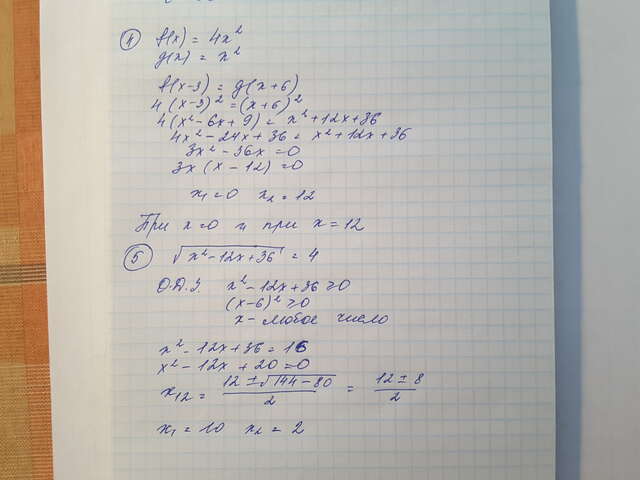 ④ f(x) = 4x²
g(x) = x²
f(x-3) = g(x+6)
4(x-3)² = (x+6)²
4(x²-6x+9) = x²+12x+36
4x²-24x+36 = x²+12x+36
3x²-36x=0
3x(x-12)=0
x₁=0 x₂=12
При x=0 и при x=12
⑤ √x²-12x+36 = 4
О.Д.З x²-12x+36≥0
(x-6)²≥0
x-любое число
x²-12x+36=16
x²-12x+20=0
x₁,₂ = 12±√144-80 / 2 = 12±8 / 2
x₁=10 x₂=2